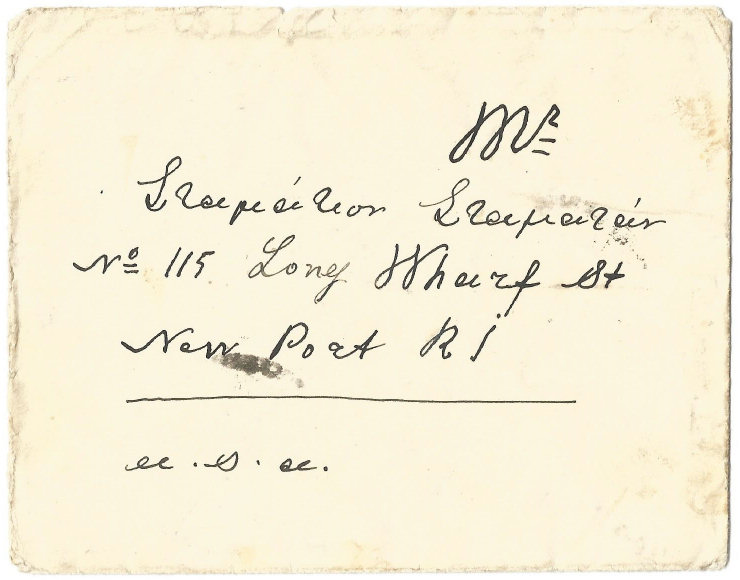 Mr
Σταμάτιον Σταματάν
No 115 Long Wharf St
New Port R i
u.s.a.